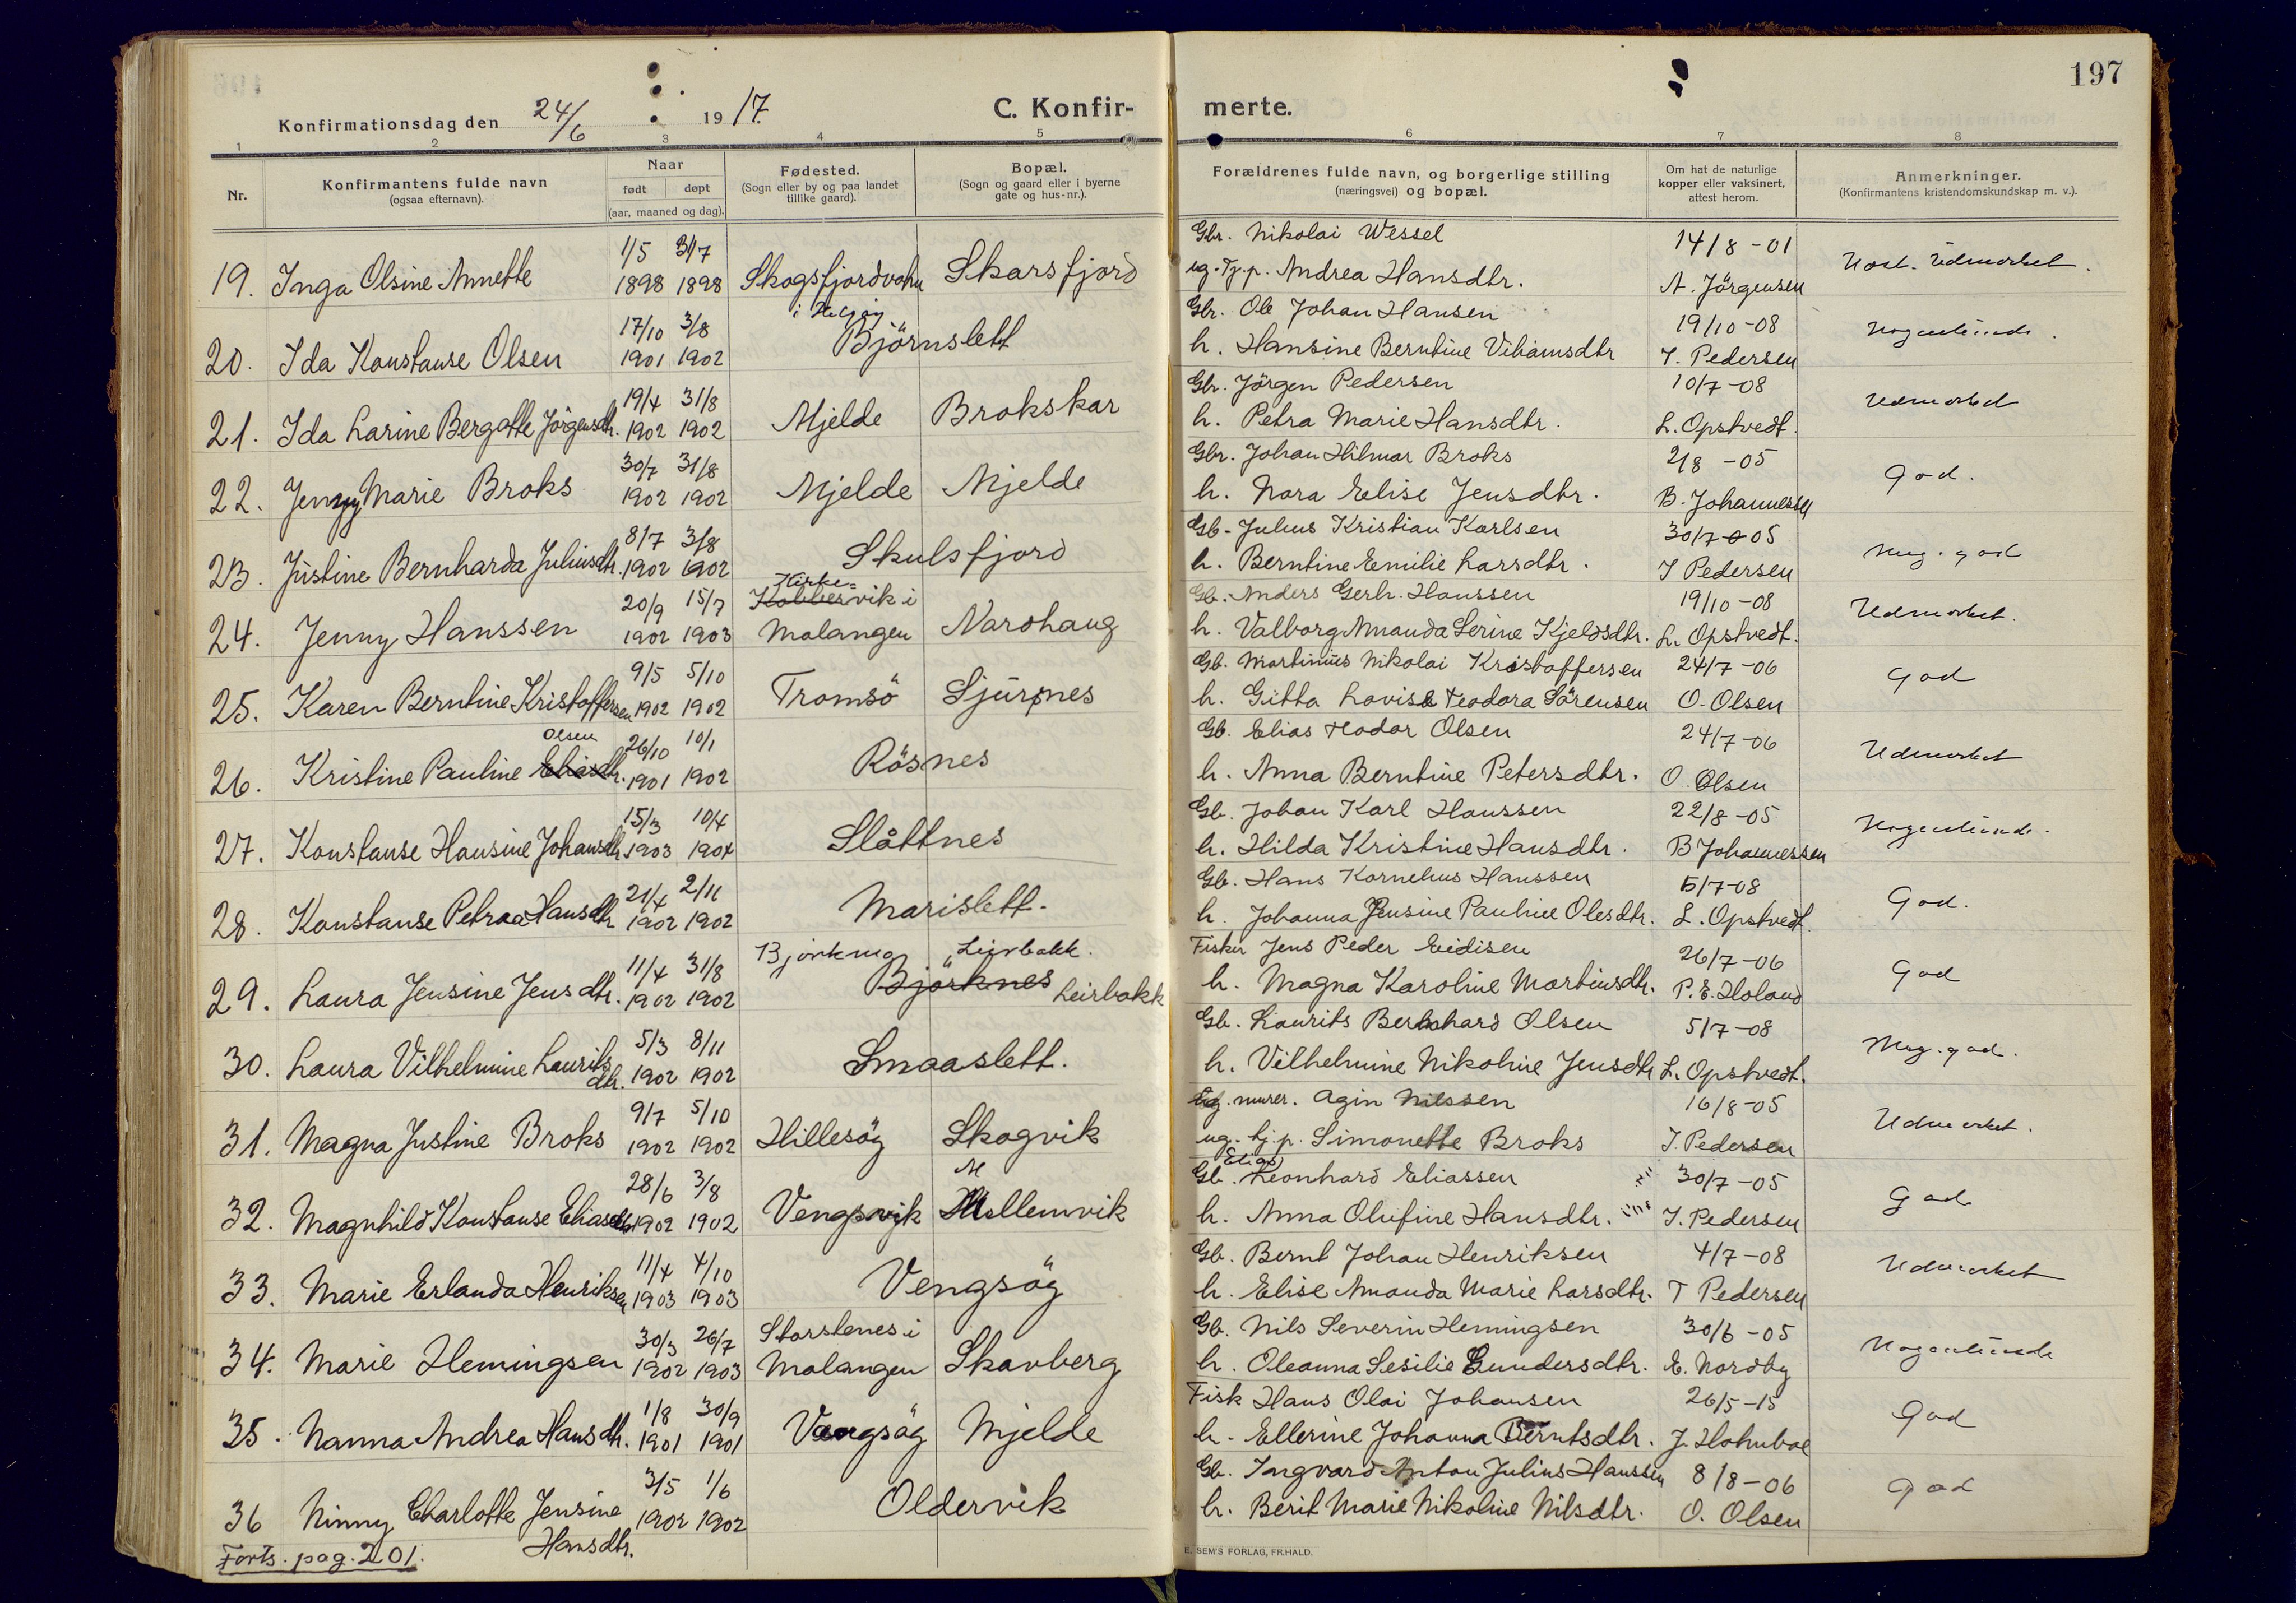 197
Konfirmationsdag den 24/6 1917.
C. Konfir-
merte.
1 2 3 4 5 6 7 8
Nr.
Konfirmantens fulde navn
(ogsaa efternavn).
Naar
født døpt
(aar, maaned og dag).
Fødested.
(Sogn eller by og paa landet
tillike gaard).
Bopæl.
(Sogn og gaard eller i byerne
gate og hus-nr.).
Forældrenes fulde navn, og borgerlige stilling
(næringsvei) og bopæl.
Om hat de naturlige
kopper eller vaksinert,
attest herom.
Anmerkninger.
(Konfirmantens kristendomskundskap m. v.).
1/5 31/7
19. Inga Olsine Annette 1898 1898 Skarsfjord
i Helgøy
Gbr. Nikolai Wessel 14/8-01
ug. Tj. p. Andrea Hansdtr. A. Jörgensen
17/10 3/8
20. Ida Konstanse Olsen 1901 1902 Björnslett
Gbr. Ole Johan Hansen 19/10-08 Nogenlunde.
h. Hansine Berntine I. Pedersen
19/4 31/8
21. Ida Larine Bergatte Jörgensdtr. 1902 1902 Mjelde Brokskar
Gbr. Jörgen Pedersen 10/7-08 Udmerket
h. Petra Marie Hansdtr. L. Opstvedt.
30/7 31/8
22. Jenny Marie Broks 1902 1902 Mjelde Mjelde
Gbr. Johan Hilmar Broks 2/8-05 God.
h. Nora Elise Jensdtr. B. Johannessen
8/7 3/8
23. Justine Bernharda Juliusdtr. 1902 1902 Skulsfjord
Gb. Julius Kristian Karlsen 30/7-05 Meg. god
h. Berntine Emilie Larsdtr. I Pedersen
20/9 15/7 Kirke-
Kobbervik i
24. Jenny Hanssen 1902 1903 Malangen
Gb. Anders Gerh. Hanssen 19/10-08 Udmerket.
h. Valborg Amanda Serine Kjeldsdtr. L. Opstvedt.
9/5 5/10
25. Karen Berntine Kristoffersen 1902 1902 Tromsö Sjursnes
Gb. Martinius Nikolai Kristoffersen 24/7-06 God
h. Gitta Lovise Teodora Sörensen O. Olsen
Olsen 26/10 10/1
26. Kristine Pauline Eliasdtr. 1901 1902 Rösnes
Gb. Elias Teodor Olsen 24/7-06 Udmerket
h. Anna Berntine Petersdtr. O. Olsen
15/3 10/4
27. Konstanse Hansine Johansdtr. 1903 1904 Slåttnes
Gb. Johan Karl Hanssen 22/8-05 Nogenlunde.
h. Hilda Kristine Hansdtr. B Johannessen
21/4 2/11
28. Konstanse Petraa Hansdtr 1902 1902 Marislett.
Gb. Hans Kornelius Hanssen 15/7-08 God.
h. Johanna Jensine Pauline Olesdtr. L. Opstvedt.
11/4 31/8 Leirbakk.
29. Laura Jensine Jensdtr. 1902 1902 Björknes Leirbakk
Fisker Jens Peder Eidisen 26/7-06 God
h. Magna Karoline Martinsdtr. P. E. Holand
5/3 8/11
30. Laura Vilhelmine Laurits
dtr. 1902 1902 Smaaslett.
Gb. Laurits Bernhard Olsen 5/7-08 Meg. god.
h. Vilhelmine Nikoline Jensdtr L. Opstvedt.
9/7 5/10
31. Magna Justine Broks 1902 1902 Hillesöy Skogvik
Ug. murer. Agin Nilssen 16/8-05 Udmerket.
ug. tj. p. Simonette Broks I. Pedersen
28/6 3/8
32. Magnhild Konstanse Eliasdtr 1902 1902 Vengsvik
Elias
Gb. Leonhard Eliassen 30/7-05 God
h. Anna Olufine Hansdtr. I. Pedersen
11/4 4/10
33. Marie Erlanda Henriksen 1903 1903 Vengsöy
Gb. Bernt Johan Henriksen 4/7-08 Udmerket
h. Elise Amanda Marie Larsdtr. I Pedersen
30/3 26/7 Storstenes i
34. Marie Hemingsen 1902 1903 Malangen Skavberg
Gb. Nils Severin Hemingsen 30/6-05 Nogenlunde
h. Oleanna Sesilie Gundersdtr. E. Nordby
1/8 30/9
35. Nanna Andrea Hansdtr. 1901 1901 Vengsöy Mjelde
Fisk Hans Olai Johansen 26/5-15 God
h. Ellerine Johanna Berntsdtr. J. Holmboe
3/5 1/6
36 Ninny Charlotte Jensine 1902 1902 Oldervik
Hansdtr.
Gb. Ingvard Anton Julius Hanssen 8/8-06 God
h. Berit Marie Nikoline Nilsdtr. O. Olsen
Forts. pag. 201.
E. SEM'S FORLAG, FR.HALD.